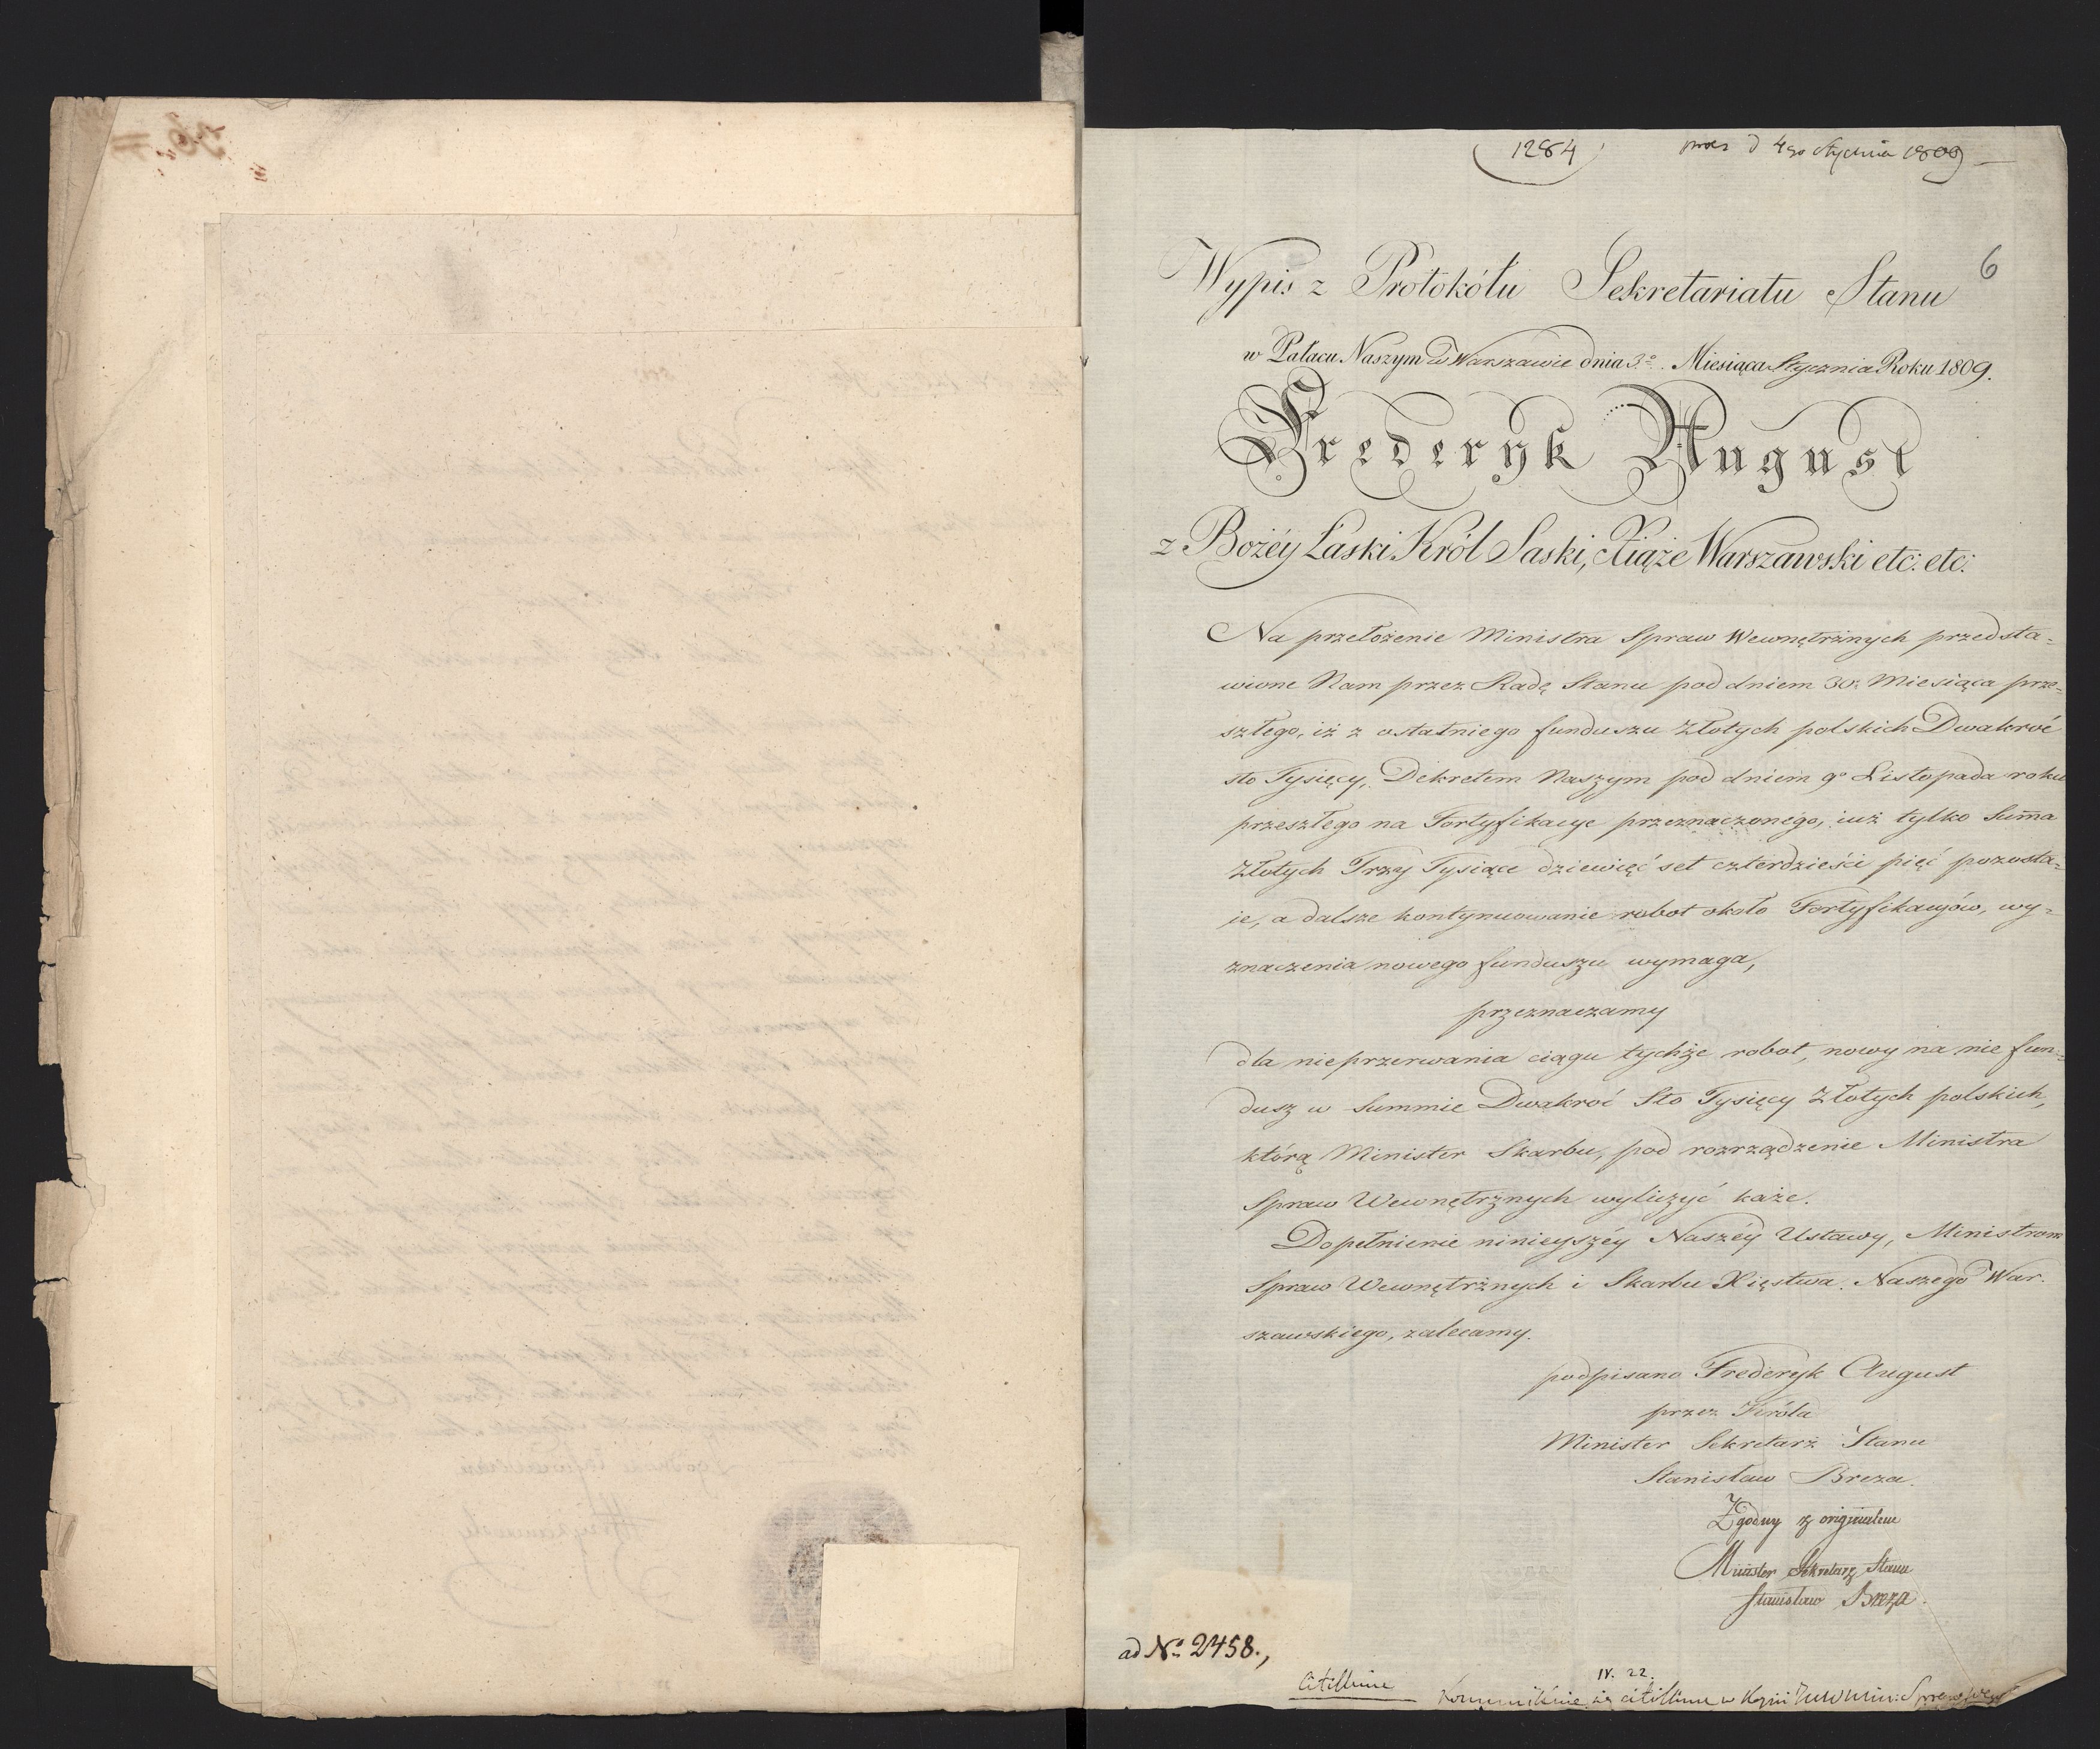 1284
praes d 4go Stycznia 1809
6
Wypis z Protokółu Sekretariatu Stanu
w Pałacu Naszym w Warszawie dnia 3o. Miesiąca Stycznia Roku 1809.
Frederyk August
z Bożéy Łaski Król Saski, Xiąże Warszawski etc: etc:
Na przełożenie Ministra Spraw Wewnętrznych przedsta=
wione Nam przez Radę Stanu pod dniem 30. Miesiąca prze=
szłego, iż z ostatniego funduszu Złotych polskich Dwakroć
sto Tysięcy, Dekretem Naszym pod dniem 9o Listopada roku
przeszłego na Fortyfikacye przeznaczonégo, iuż tylko Sum̄a
Złotych Trzy Tysiące dziewięć set czterdzieści pięć pozosta=
ie, a dalsze kontynuowanie robot około Fortyfikacyów, wy=
znaczenia nowego funduszu wymaga,
przeznaczamy
dla nieprzerwania ciągu tychże robot, nowy na nie fun=
dusz w Summie Dwakroć Sto Tysięcy Złotych polskich,
którą Minister Skarbu, pod rozrządzenie Ministra
Spraw Wewnętrznych wyliczyć każe.
Dopełnienie ninieyszéy Naszéy Ustawy, Ministrom
Spraw Wewnętrznych i Skarbu Xięstwa Naszego War-
szawskiego, zalecamy.
podpisano Frederyk August
przez Króla
Minister Sekretarz Stanu
Stanisław Breza.
Zgodny z originałem
Minister Sekretarz Stanu
Stanisław Breza.
ad No 2458.,
IV. 22.
citissime
citissime w